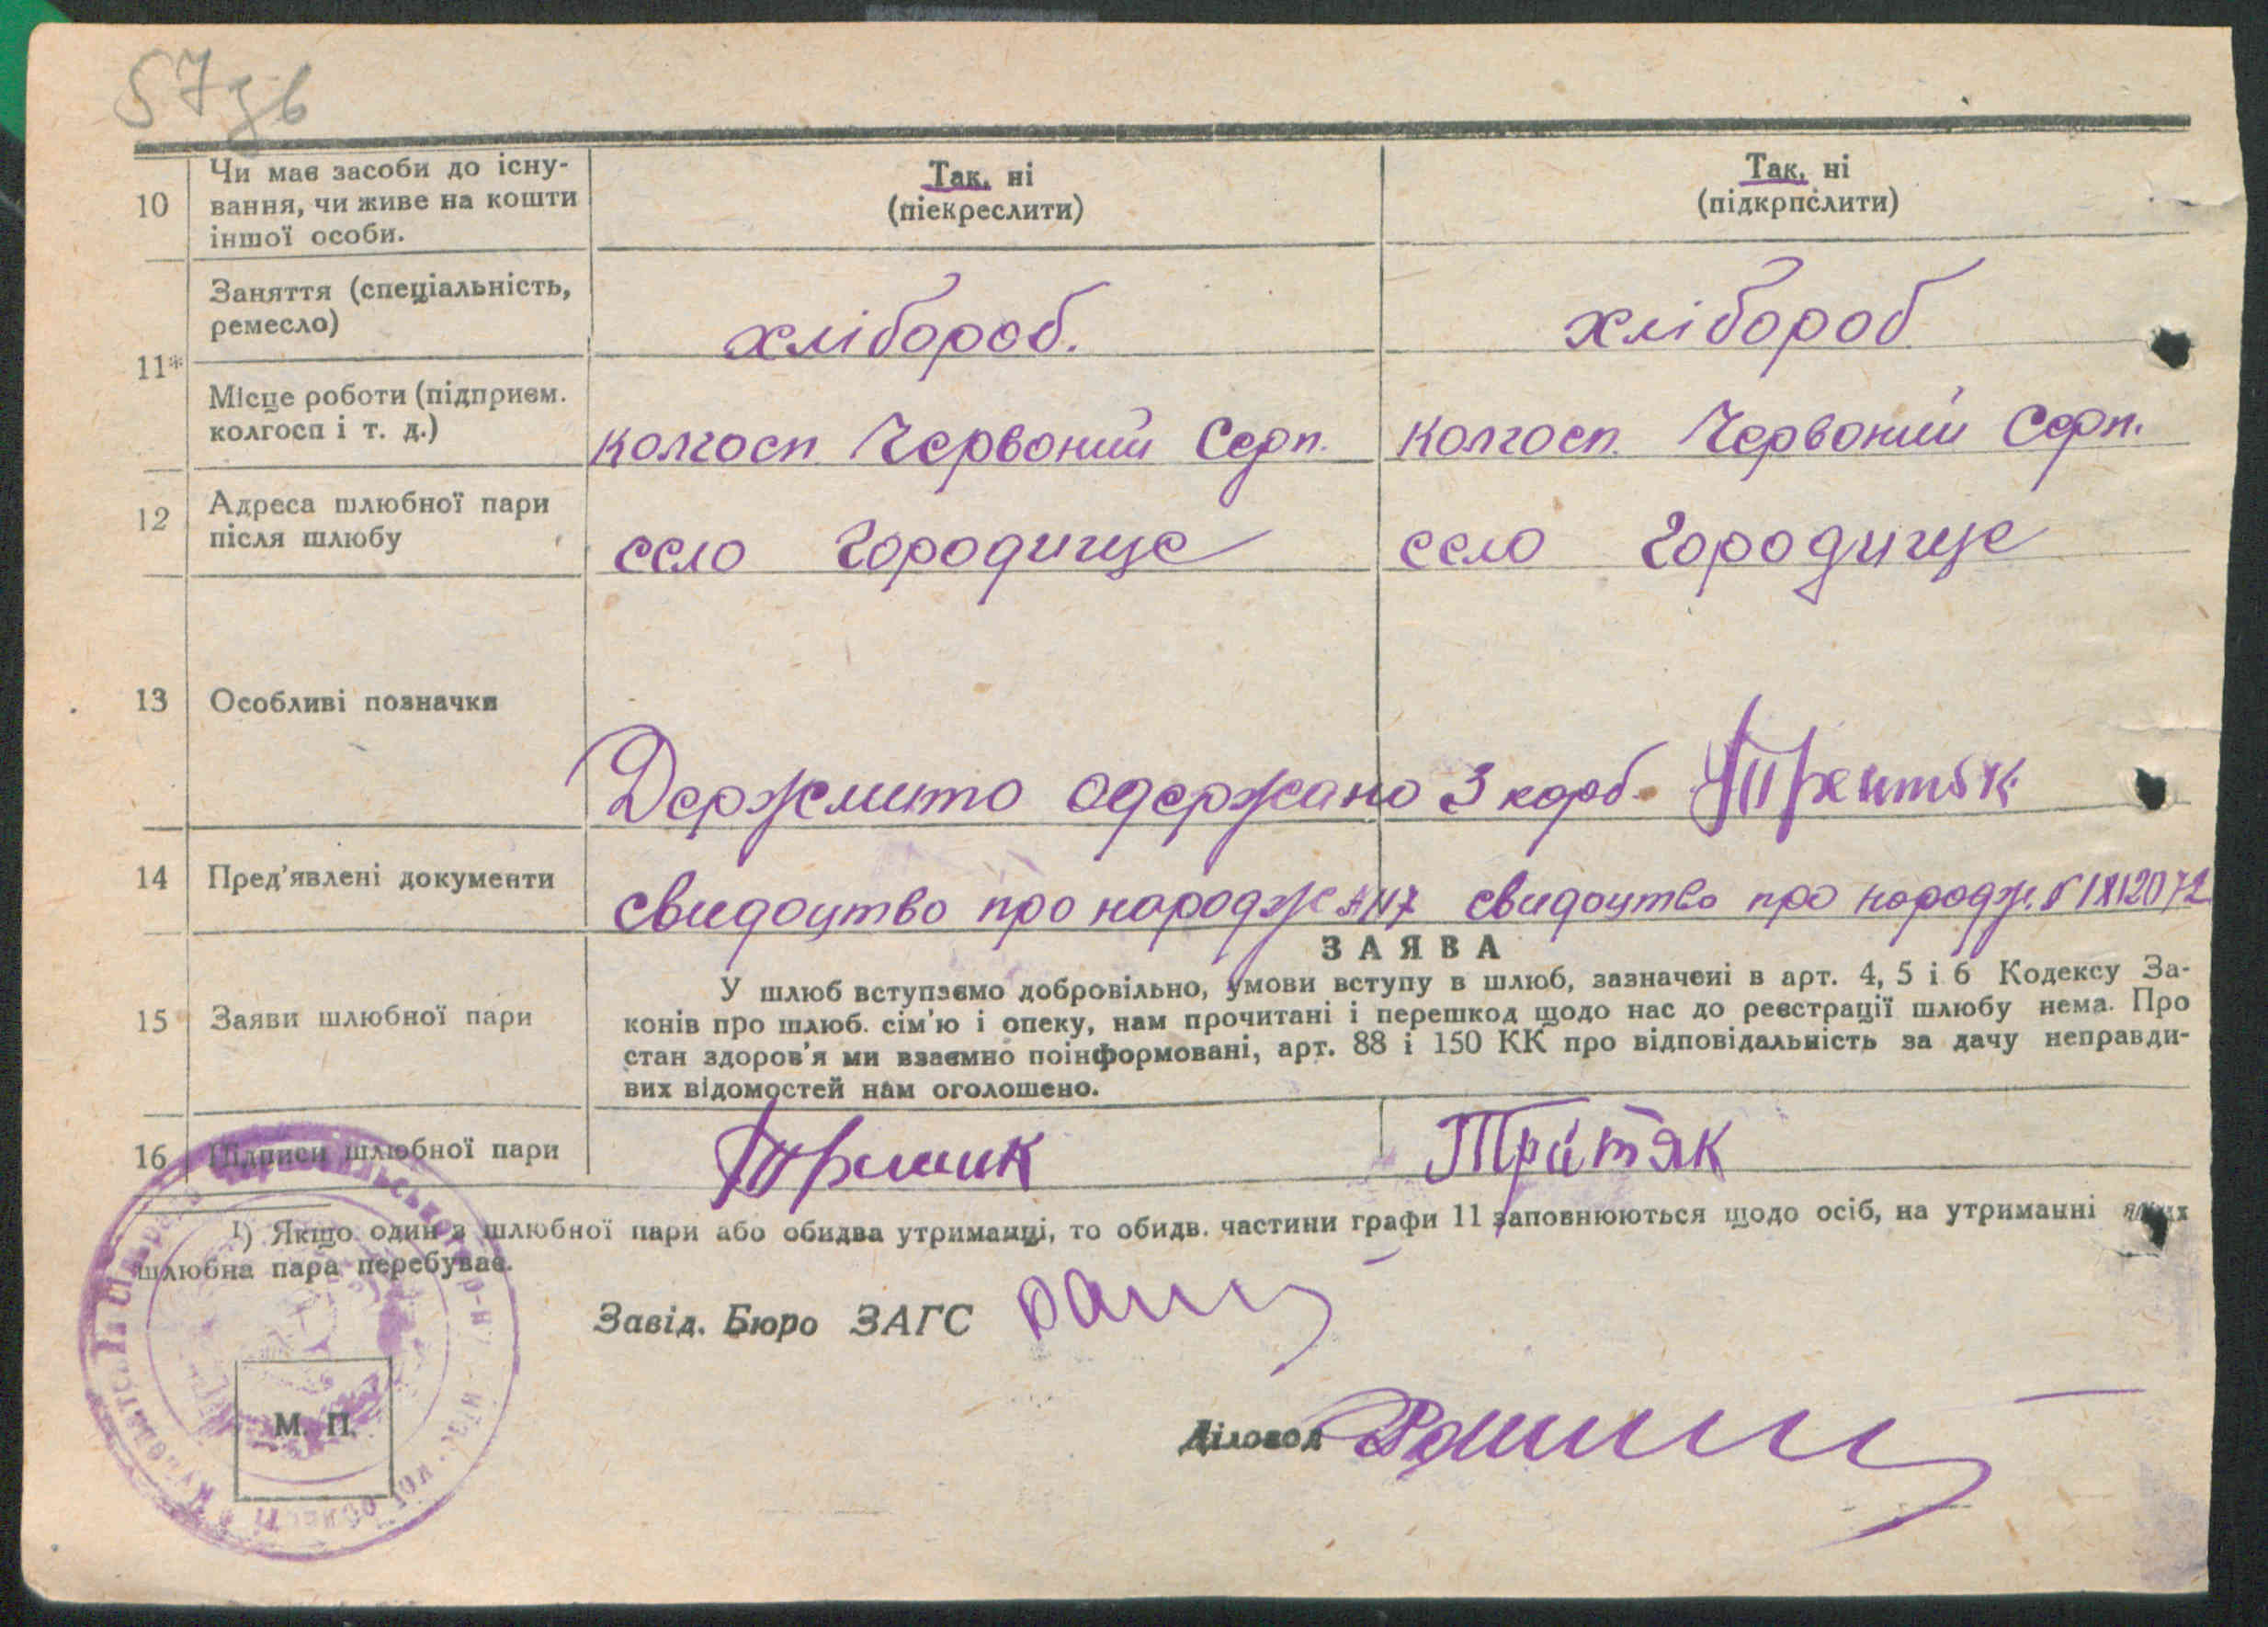 57зв
10
Чи має засоби до існу-
вання, чи живе на кошти
іншої особи.
Так, ні
(піекреслити)
Так, ні
(підкрпслити)
11*
Заняття (спеціальність,
ремесло)
хлібороб.
хлібороб
Місце роботи (підприєм.
колгосп і т. д.)
колгосп Червоний Серп.
колгосп. Червоний Серп.
12
Адреса шлюбної пари
після шлюбу
село Городище
село Городище
13
Особливі позначки
Держмито одержано 3 карб.
14
Пред’явлені документи
свидоцтво про народж
свидоцтво про народж.
15
Заяви шлюбної пари
ЗАЯВА
У шлюб вступаємо добровільно, умови вступу в шлюб, зазначені в арт. 4, 5 і 6 Кодексу За-
конів про шлюб. сім’ю і опеку, нам прочитані і перешкод щодо нас до реєстрації шлюбу нема. Про
стан здоров’я ми взаємно поінформовані, арт. 88 і 150 КК про відповідальність за дачу неправди-
вих відомостей нам оголошено.
16
Підписи шлюбної пари
Тритяк
¹) Якщо один з шлюбної пари або обидва утриманці, то обидв. частини графи 11 заповнюються щодо осіб, на утриманні яких
шлюбна пара перебуває.
Завід. Бюро ЗАГС
Діловод
М. П.